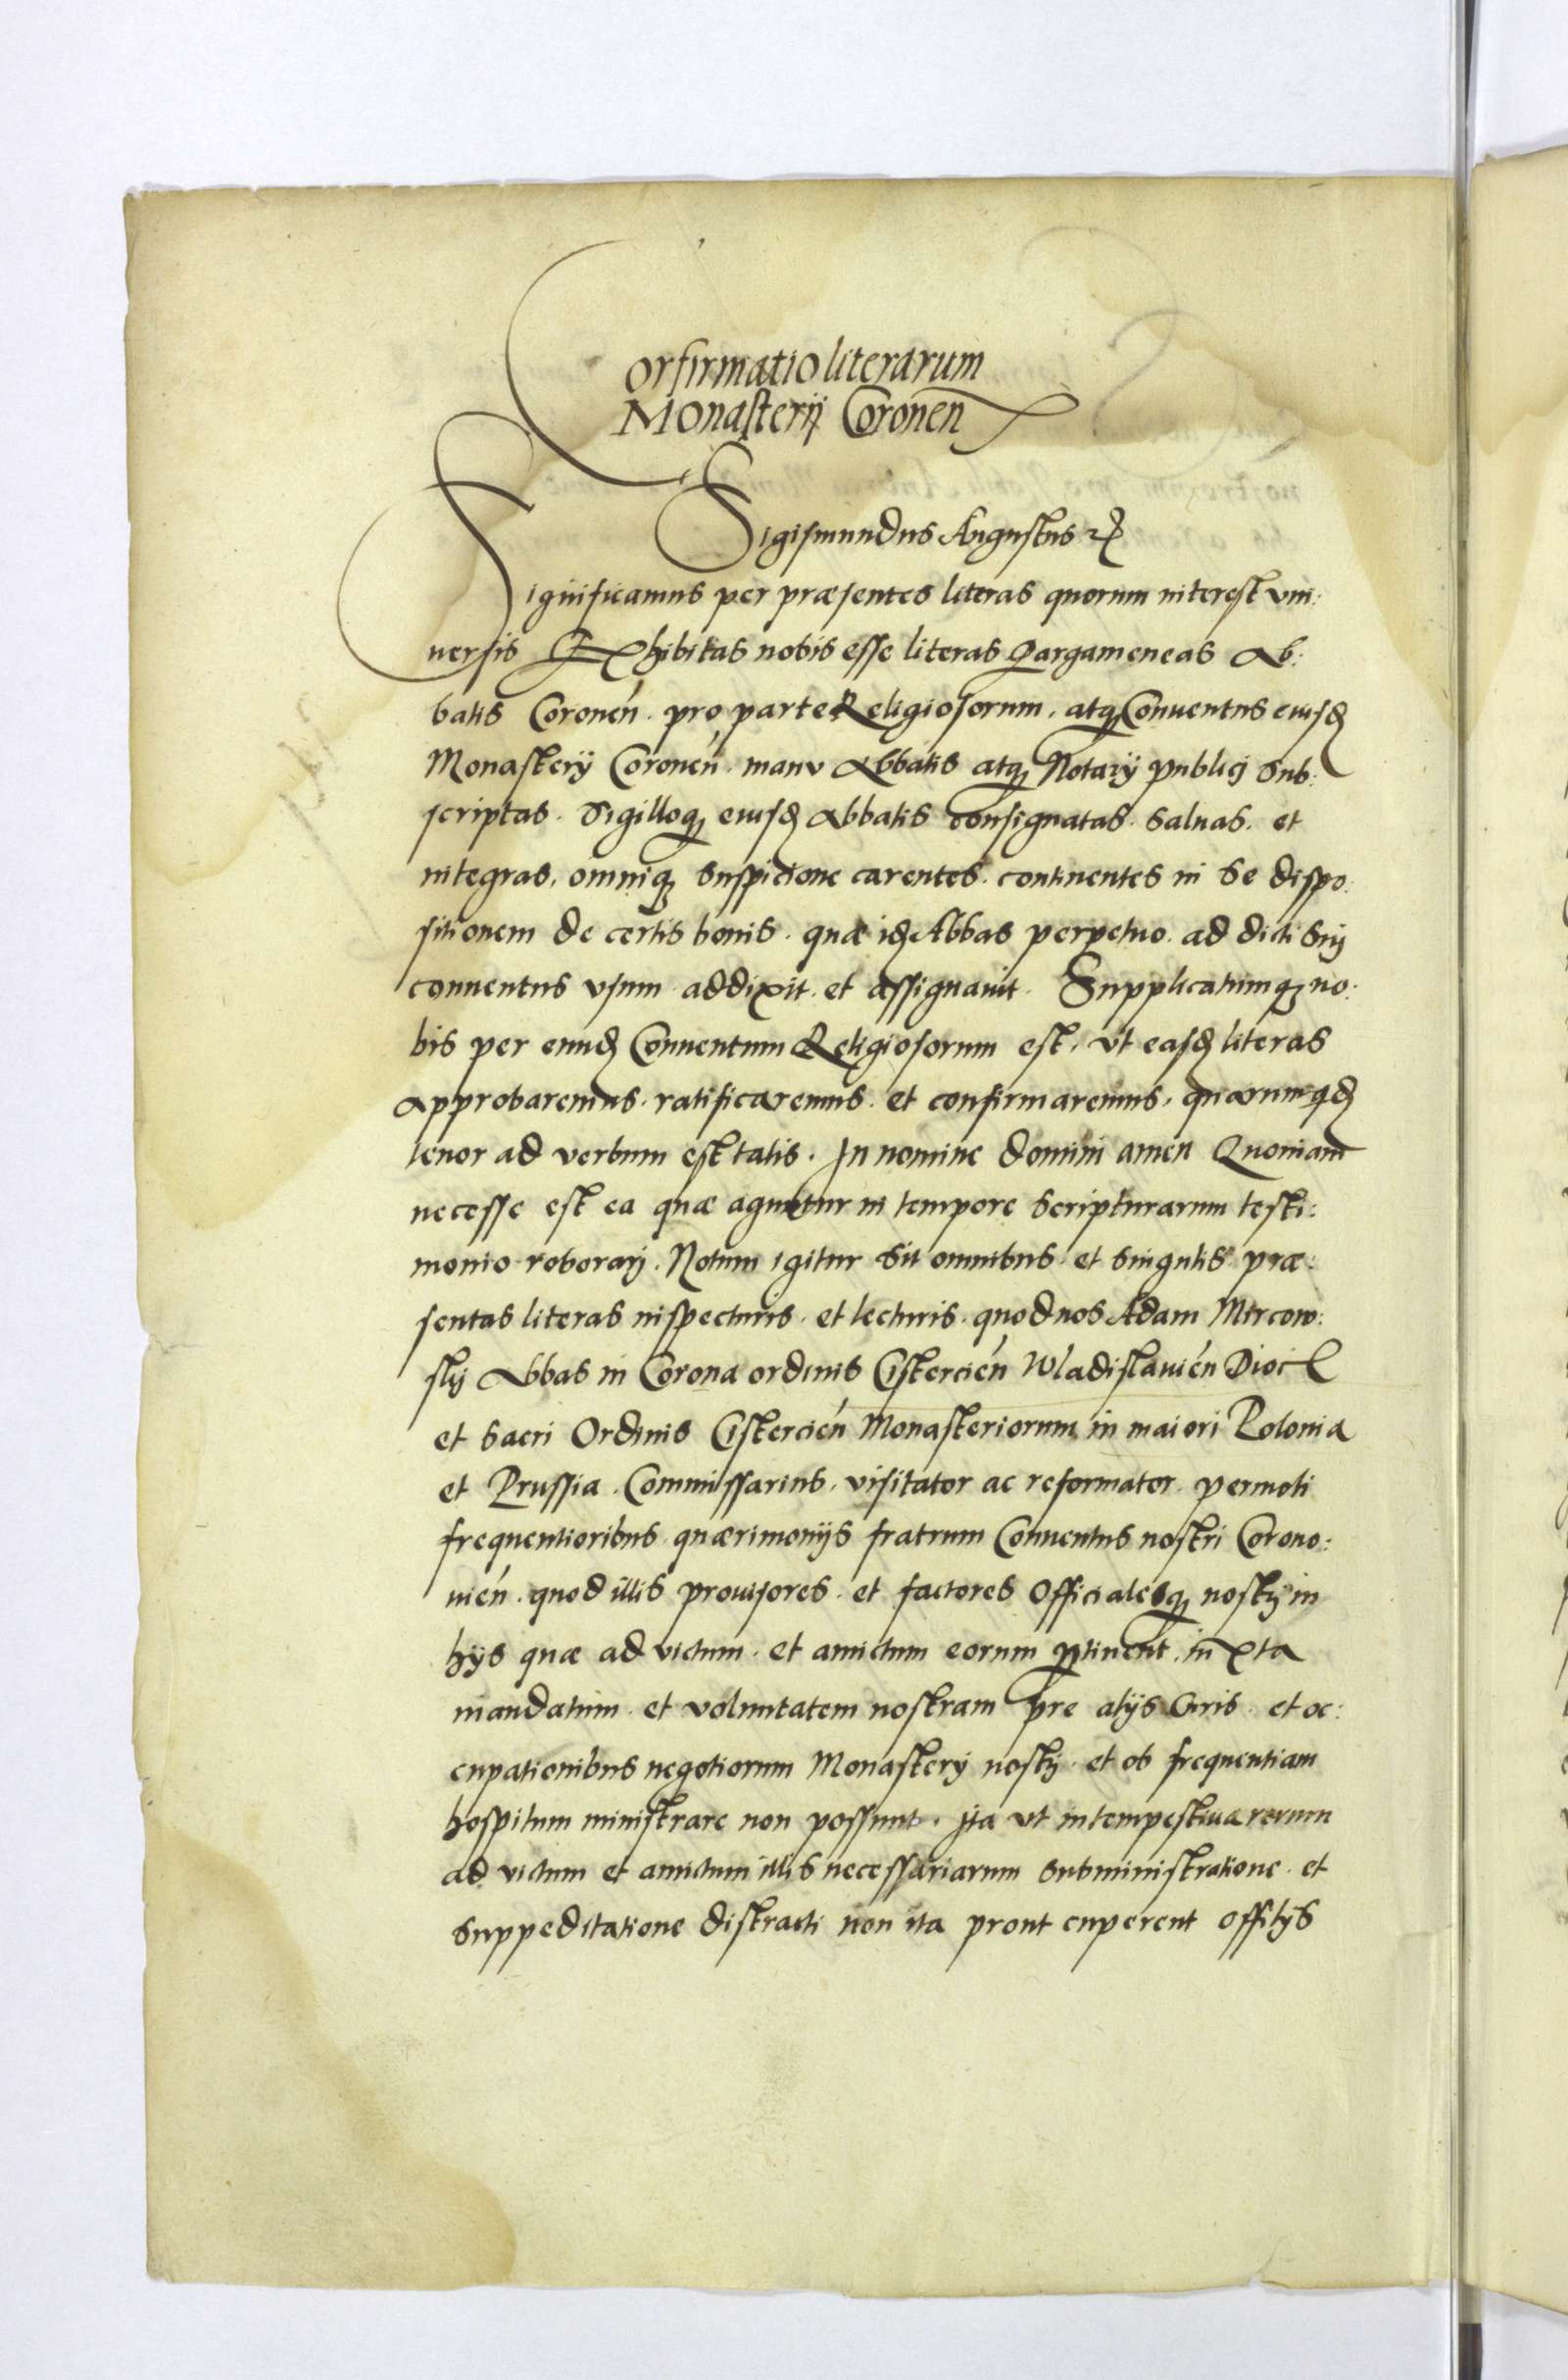 Confirmatio literarum
Monasterij Coronen
Sigismundus Augustus Rx
Significamus per præsentes literas quorum interest vni:
uersis Exhibitas nobis esse literas Pargameneas Ab:
batis Coronen̄. pro parte Religiosorum. atq3 Conuentus eiusd3
Monastery Coronen̄. manu Abbatis atq3 Notarij publicj Sub:
scriptas. Sigilloq3 eiusd3 Abbatis consignatas. Saluas. et
integras, omniq3 suspicione carentes. continentes in se dispo:
sitionem de certis bonis. quæ id3 Abbas perpetuo. ad dicti suj
conuentus vsum addixit. et assignauit. Supplicatumq3 no:
bis per eund3 Conuentum Religiosorum est, vt easd3 literas
Approbaremus. ratificaremus. et confirmaremus, quarumqd3
tenor ad verbum est talis. In nomine domini amen Quoniam
necesse est ea quæ aguntur in tempore scripturarum testi:
monio roborarj. Notum igitur sit omnibus. et singulis præ:
sentas literas inspecturis. et lecturis. quod nos Adam Mircow:
skj Abbas in Corona ordinis Cistercien̄ Wladislauien̄ Dioc
et sacri Ordinis Cistercien̄ Monasteriorum in maiori Polonia
et Prussia. Commissarius. visitator ac reformator. permoti
frequentioribus quærimonijs fratrum Conuentus nostri Corono:
uien̄. quod illis prouisores. et factores officialesq3 nostrj in
hijs quæ ad victum. et amictum eorum ptinent, iuxta
mandatum. et voluntatem nostram pre alijs Curis. et oc:
cupationibus negotiorum Monastery nostrj. et ob frequentiam
hospitum ministrare non possunt. Ita vt intempestiua rerum
ad victum et amictum illis necessariarum subministratione. et
suppeditatione distracti non ita prout cuperent offitijs